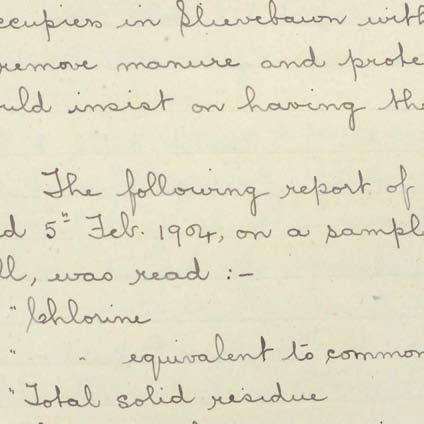 ccupiers in Slievebawn with
remove manure and prote
uld insist on having the
The following report of
d 5th Feb. 1904, on a sampl
ll, was read :-
" Chlorine
" " equivalent to common
" Total solid residue